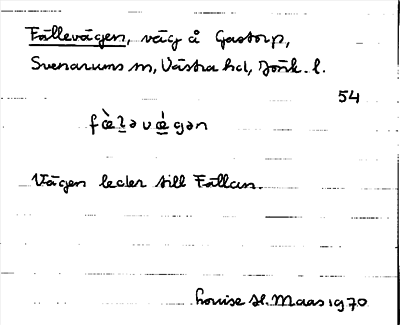 Fällevägen, väg å Gastorp,
Svenarums sn, Västra hd, Jönk. l.
54
fæ̀lǝvǽgǝn
Vägen leder till Fällan.
Louise H. Maas 1970